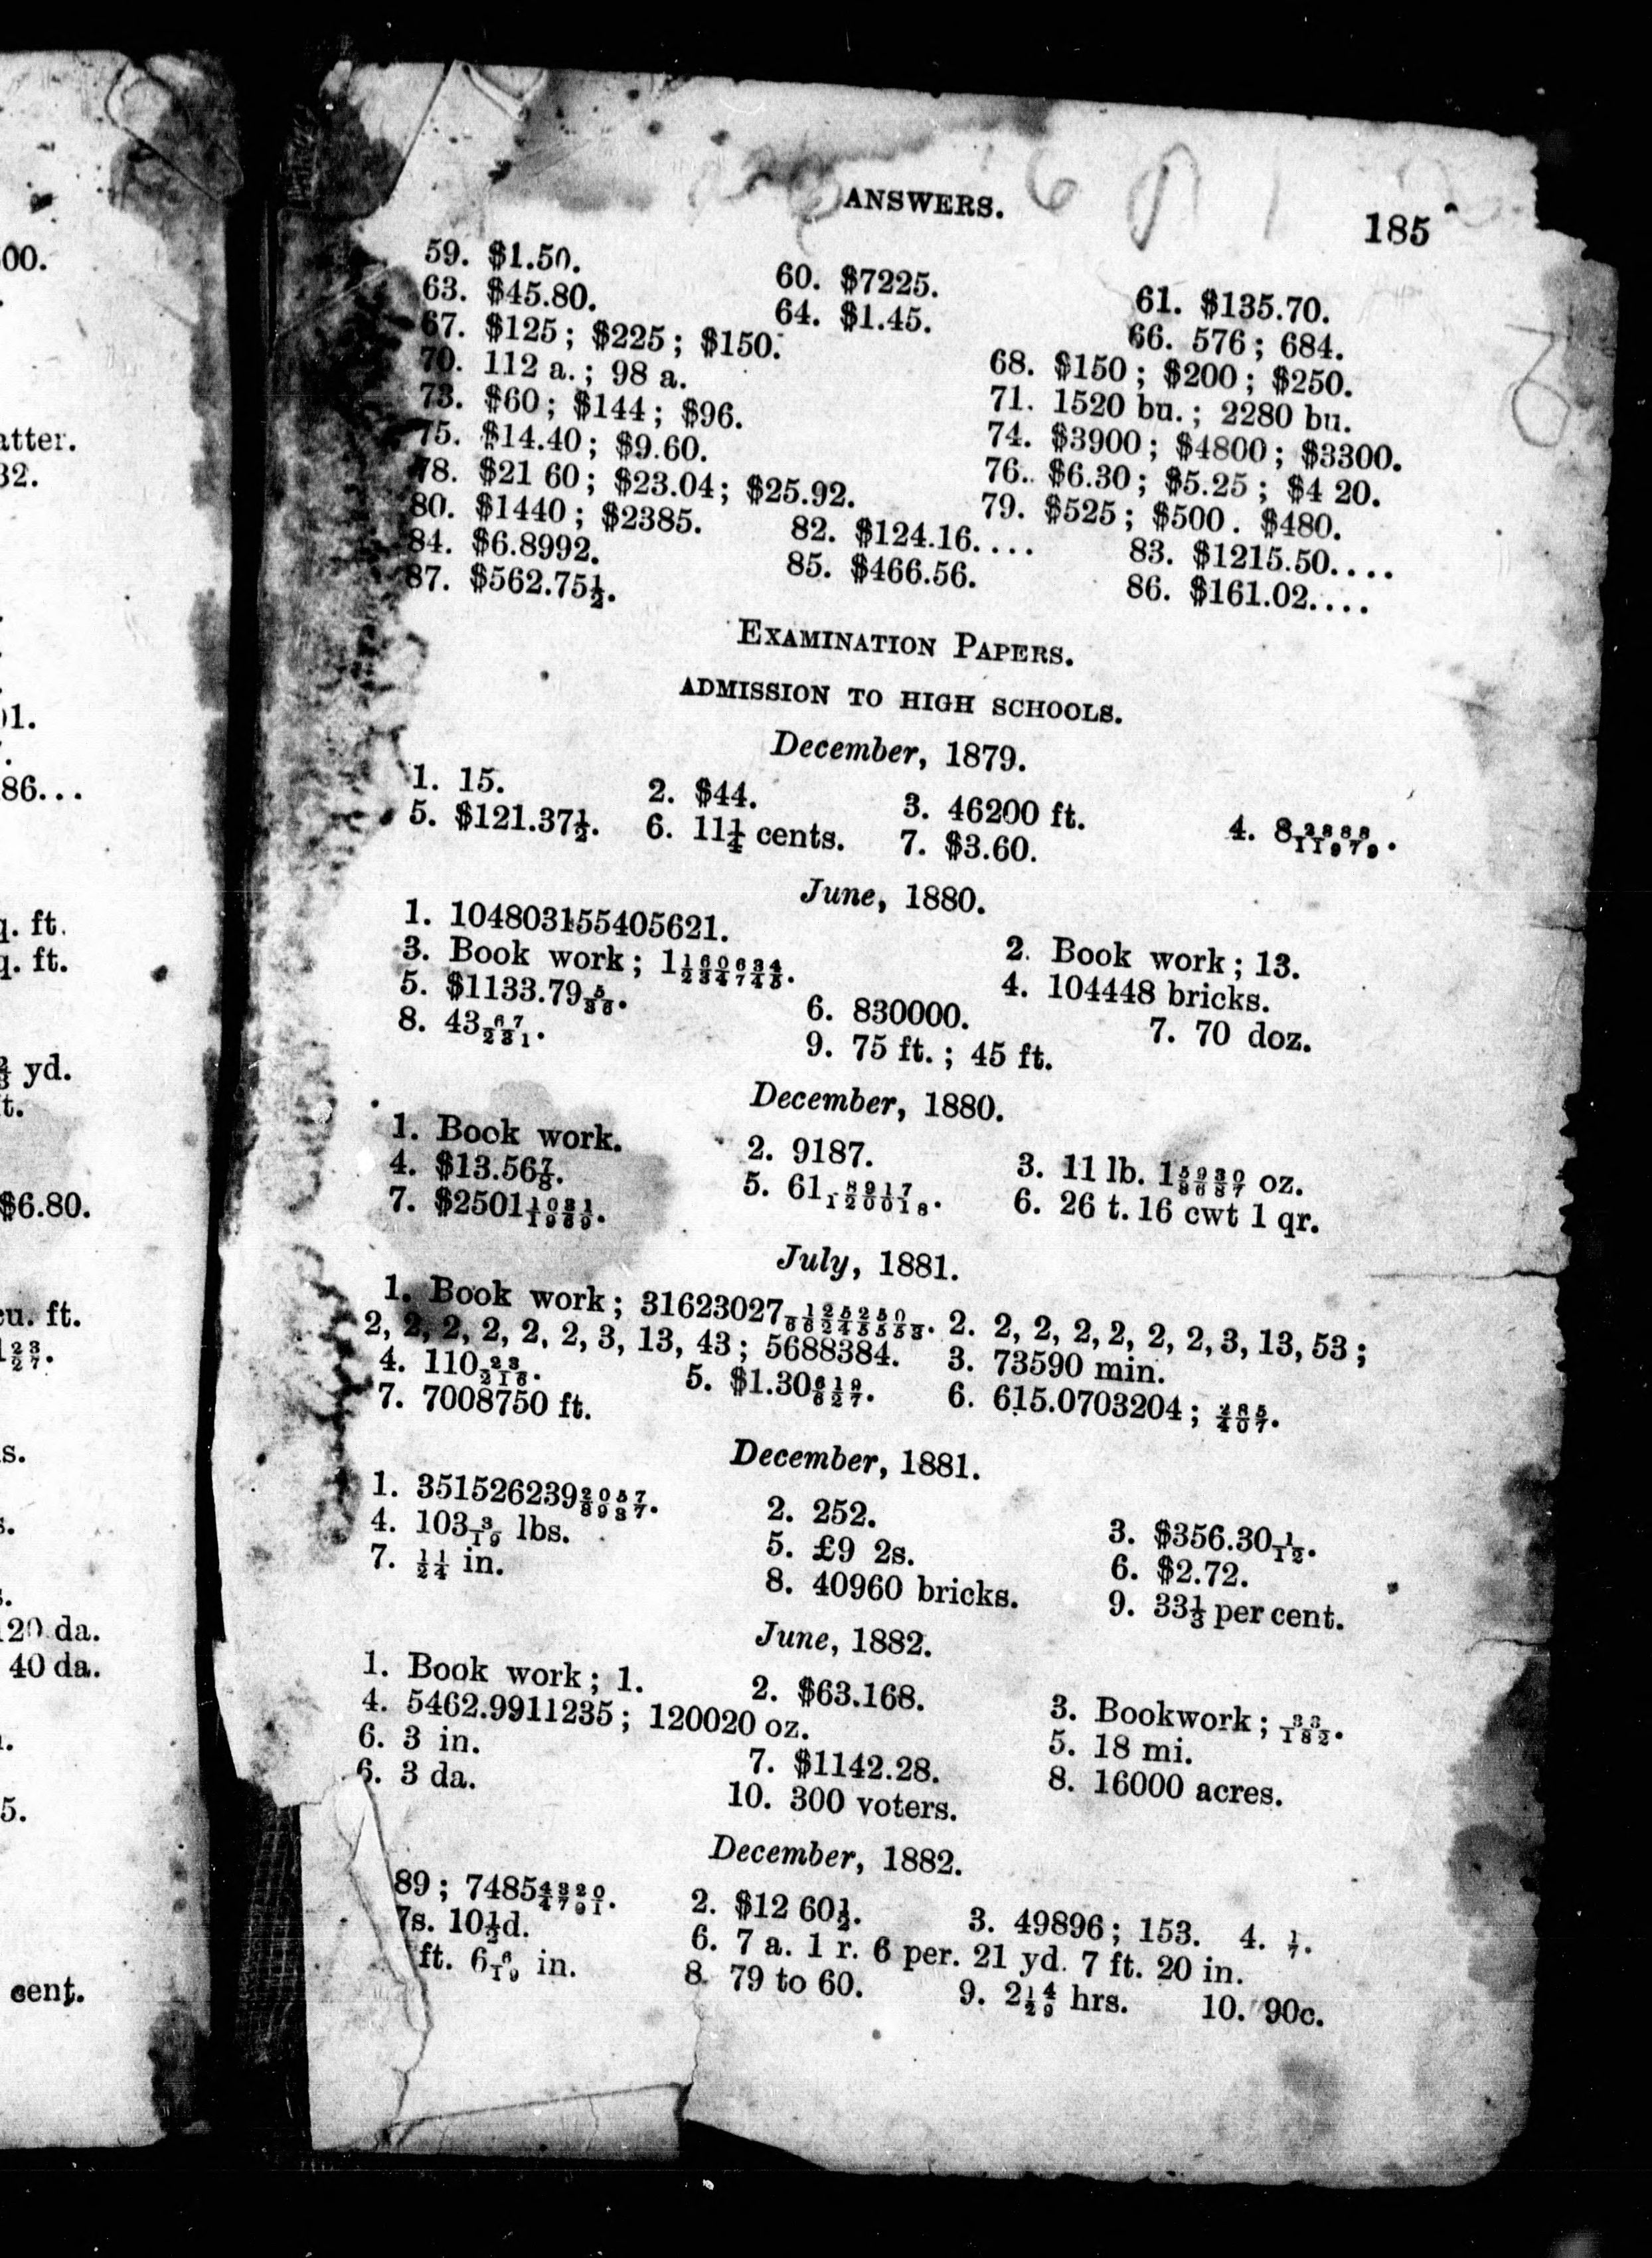 ANSWERS.
185
59. $1.50. 60. $7225. 61. $135.70.
63. $45.80. 64. $1.45. 66. 576; 684.
67. $125; $225; $150. 68. $150; $200; $250.
70. 112 a.; 98 a. 71. 1520 bu.; 2280 bu.
73. $60; $144; $96. 74. $3900; $4800; $3300.
75. $14.40; $9.60. 76. $6.30; $5.25; $4 20.
78. $21 60; $23.04; $25.92. 79. $525; $500. $480.
80. $1440; $2385. 82. $124.16.... 83. $1215.50....
84. $6.8992. 85. $466.56. 86. $161.02....
87. $562.75½.
EXAMINATION PAPERS.
ADMISSION TO HIGH SCHOOLS.
December, 1879.
1. 15. 2. $44. 3. 46200 ft. 4. 8
5. $121.37½. 6. 11¼ cents. 7. $3.60.
June, 1880.
1. 104803155405621. 2. Book work; 13.
3. Book work; 1 160634/234745. 4. 104448 bricks.
5. $1133.79 5/36. 6. 830000. 7. 70 doz.
8. 43 67/231. 9. 75 ft.; 45 ft.
December, 1880.
1. Book work. 2. 9187. 3. 11 lb. 1 5930/8687 oz.
4. $13.56⅞. 5. 61 8917/120018. 6. 26 t. 16 cwt 1 qr.
7. $2501 1031/1969.
July, 1881.
1. Book work; 31623027 2. 2, 2, 2, 2, 2, 2, 3, 13, 53;
2, 2, 2, 2, 2, 2, 3, 13, 43; 5688384. 3. 73590 min.
4. 110 23/216. 5. $1.30 619/627. 6. 615.0703204; 285/407.
7. 7008750 ft.
December, 1881.
1. 351526239 2057/8937. 2. 252. 3. $356.30 1/12.
4. 103 3/19 lbs. 5. £9 2s. 6. $2.72.
7. 11/24 in. 8. 40960 bricks. 9. 33⅓ per cent.
June, 1882.
1. Book work; 1. 2. $63.168. 3. Bookwork; 33/182.
4. 5462.9911235; 120020 oz. 5. 18 mi.
6. 3 in. 7. $1142.28. 8. 16000 acres.
6. 3 da. 10. 300 voters.
December, 1882.
89; 7485 4320/4791. 2. $12 60½. 3. 49896; 153. 4. 1/7.
7s. 10½d. 6. 7 a. 1 r. 6 per. 21 yd. 7 ft. 20 in.
ft. 6 6/19 in. 8. 79 to 60. 9. 2 14/29 hrs. 10. 90c.
00.
atter.
32.
01.
86...
q. ft.
q. ft.
yd.
t.
$6.80.
cu. ft.
s.
120 da.
40 da.
5.
cent.